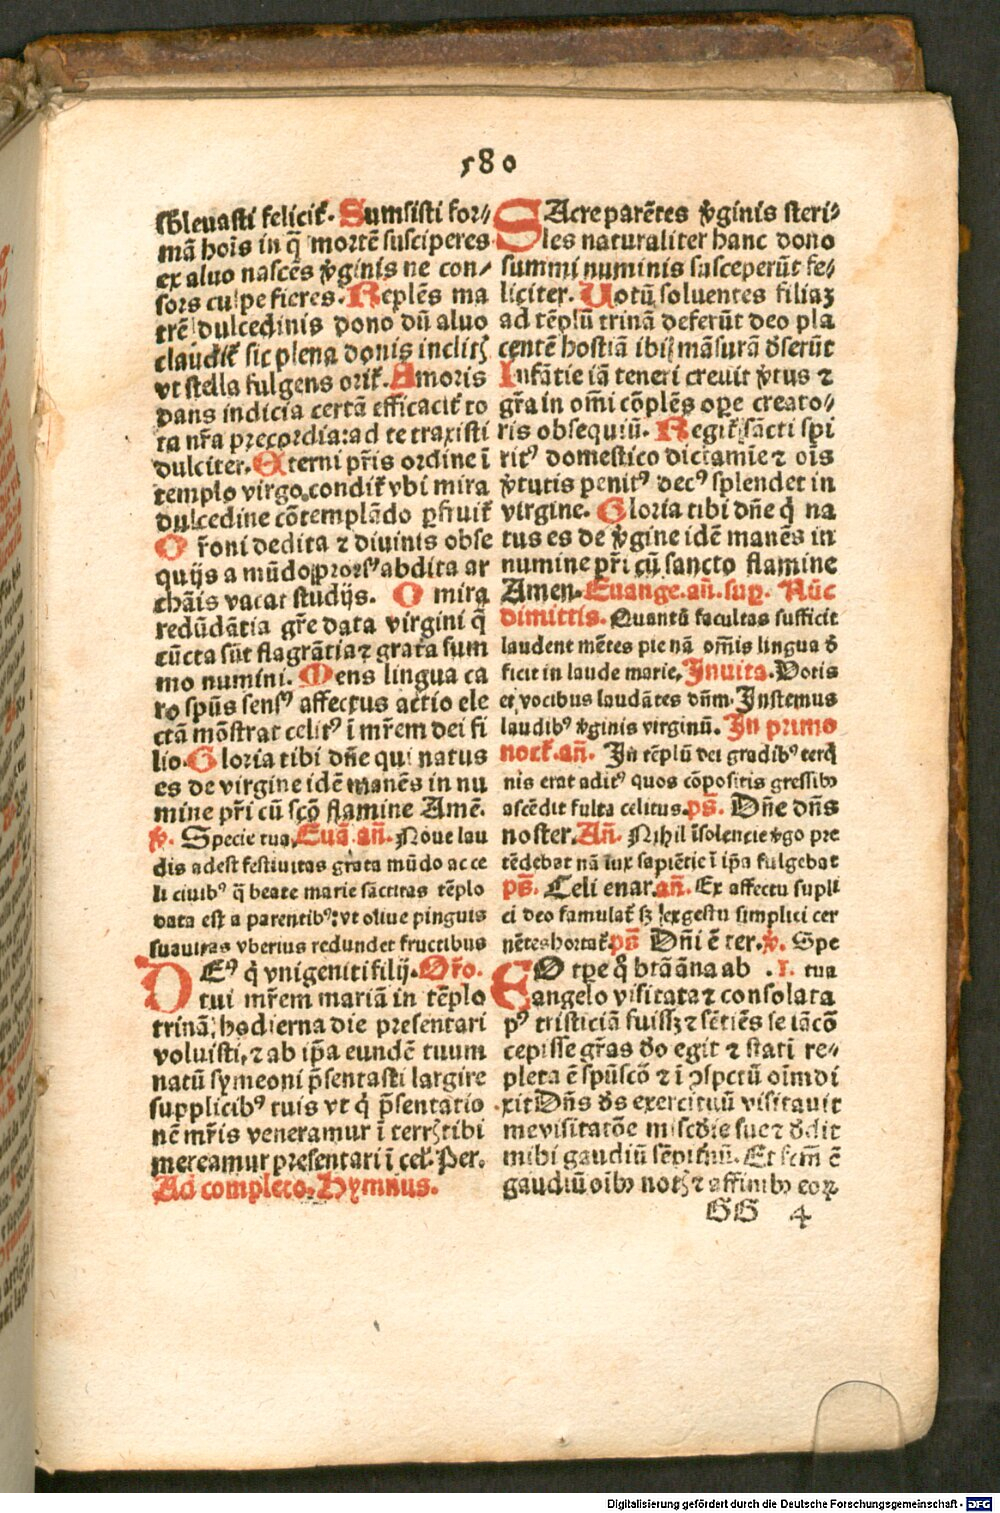 580
sbleuasti felicit̃. Sumsisti for⸗
mā hoīs in q̄ mortē susciperes
ex aluo nascēs v̓ginis ne con⸗
sors culpe fieres. Replēs ma
trē dulcedinis dono dū aluo
claudit̃ sic plena donis inclitꝭ
vt stella fulgens orit̃. Amoris
dans indicia certā efficacit̃ to
ta nr̄a precordia: ad te traxisti
dulciter. Eterni pr̄is ordine ī
templo virgo condit̃ vbi mira
dulcedine cōtemplādo ꝑfruit̃
O r̄oni dedita ⁊ diuinis obse
quijs a mūdo prorsꝰ abdita ar
chāis vacat studijs. O mira
redūdātia gr̄e data virgini q̄
cūcta sūt flagrātia ⁊ grata sum
mo numini. Mens lingua ca
ro spūs sensꝰ affectus actio ele
ctā mōstrat celitꝰ ī mr̄em dei fi
lio. Gloria tibi dn̄e qui natus
es de virgine idē manēs in nu
mine pr̄i cū scō flamine Amē.
v̓. Specie tua. Euā. an̄. Noue lau
dis adest festiuitas grata mūdo ac ce
li ciuibꝰ q̄ beate marie sāctitas tēplo
data est a parentibꝰ: vt oliue pinguis
suauitas vberius redundet fructibus
DEꝰ q̇ vnigeniti filij. Or̄o.
tui mr̄em mariā in tēplo
trinā; hodierna die presentari
voluisti, ⁊ ab ip̄a eundē tuum
natū symeoni p̄sentasti largire
supplicibꝰ tuis vt q̇ p̄sentatio
nē mr̄is veneramur ī terrꝭ tibi
mereamur presentari ī cel̓. Per.
Ad completo. Hymnus.
SAcre parētes v̓ginis steri⸗
les naturaliter hanc dono
summi numinis susceperūt fe⸗
liciter. Uotū soluentes filiaꝫ
ad tēplū trinā deferūt deo pla
centē hostiā ibiꝫ māsurā d̓serūt
Infātie iā teneri creuit v̓tus ⁊
gr̄a in om̄i cōplēs oꝑe creato⸗
ris obsequiū. Regit̃ sācti spi
ritꝰ domestico dictamīe ⁊ oīs
v̓tutis penitꝰ decꝰ splendet in
virgine. Gloria tibi dn̄e q̇ na
tus es de v̓gine idē manēs in
numine pr̄i cū sancto flamine
Amen. Euange. an̄. suꝑ. Nūc
dimittis. Quantū facultas sufficit
laudent mētes pie nā om̄is lingua d̓
ficit in laude marie. Inuita. Votis
et vocibus laudātes dn̄m. Instemus
laudibꝰ v̓ginis virginū. In primo
noct̃. an̄. In tēplū dei gradibꝰ terq̇
nis erat aditꝰ quos cōpositis gressibꝰ
ascēdit fulta celitus. ps̄. Dn̄e dn̄s
noster. An̄. Nihil īsolencie v̓go pre
tēdebat nā lux sapiētie ī ip̄a fulgebat
ps̄. Celi enar. an̄. Ex affectu supli
ci deo famulat̃ sꝫ ⁊ ex gestu simplici cer
nētes hortat̃. ps̄ Dn̄i ē ter. v̓. Spe
EO tꝑe q̊ btā āna ab .I. tua
angelo visitata ⁊ consolata
pꝰ tristiciā fuissꝫ ⁊ sētiēs se iā cō
cepisse gr̄as d̓o egit ⁊ statī re⸗
pleta ē spū scō ⁊ ī ꝯspctū oīm di
xit Dn̄s d̓s exercituū visitauit
me visitatōe mīscd̓ie sue ⁊ d̓dit
mihi gaudiū sēpit̓nū. Et fcm̄ ē
gaudiū oībꝰ notꝭ ⁊ affinibꝰ eoꝝ
GG 4
Digitalisierung gefördert durch die Deutsche Forschungsgemeinschaft - DFG